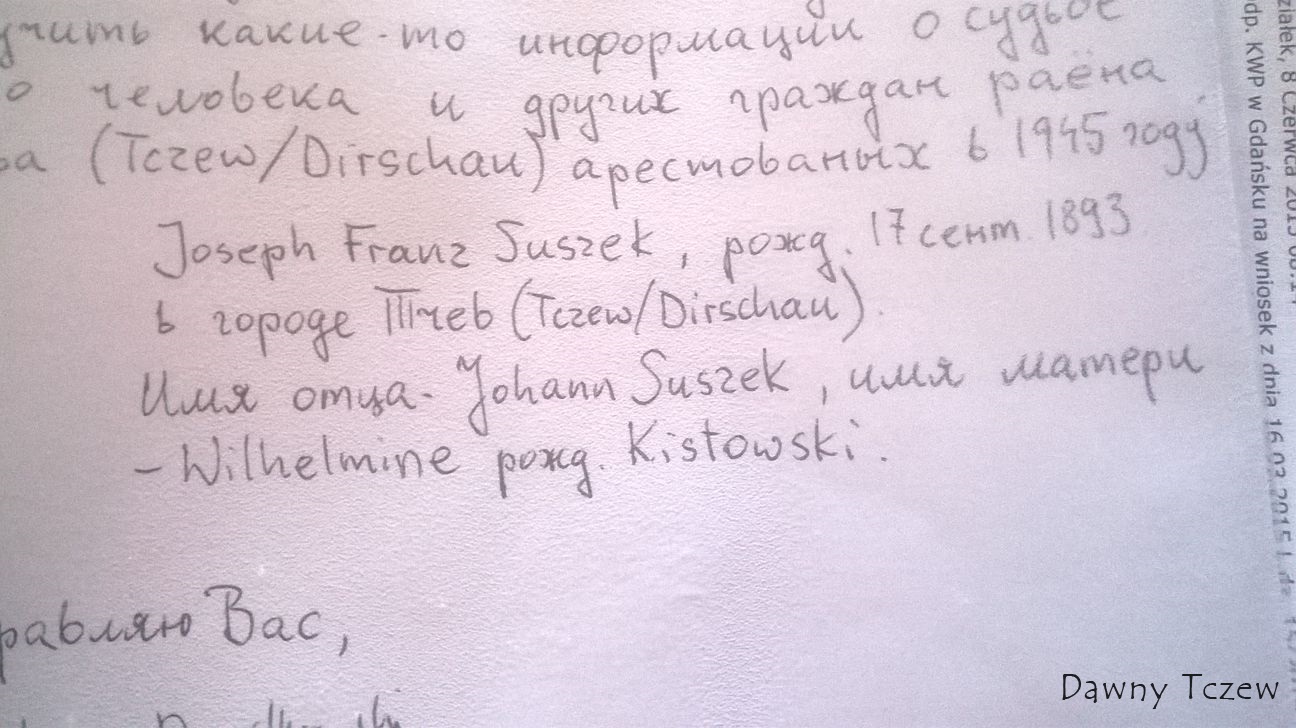 какие-то информации о судьбе
человека и других граждан раёна
(Tczew/Dirschau) арестованых в 1945 году
Joseph Franz Suszek, рожд. 17 сент. 1893
в городе Тчев (Tczew/Dirschau).
Имя отца - Johann Suszek, имя матери
- Wilhelmine рожд. Kistowski.
Вас,
działek, 8 Czerwca 2015
odp. KWP w Gdańsku na wniosek z dnia 16.03.2015
Dawny Tczew